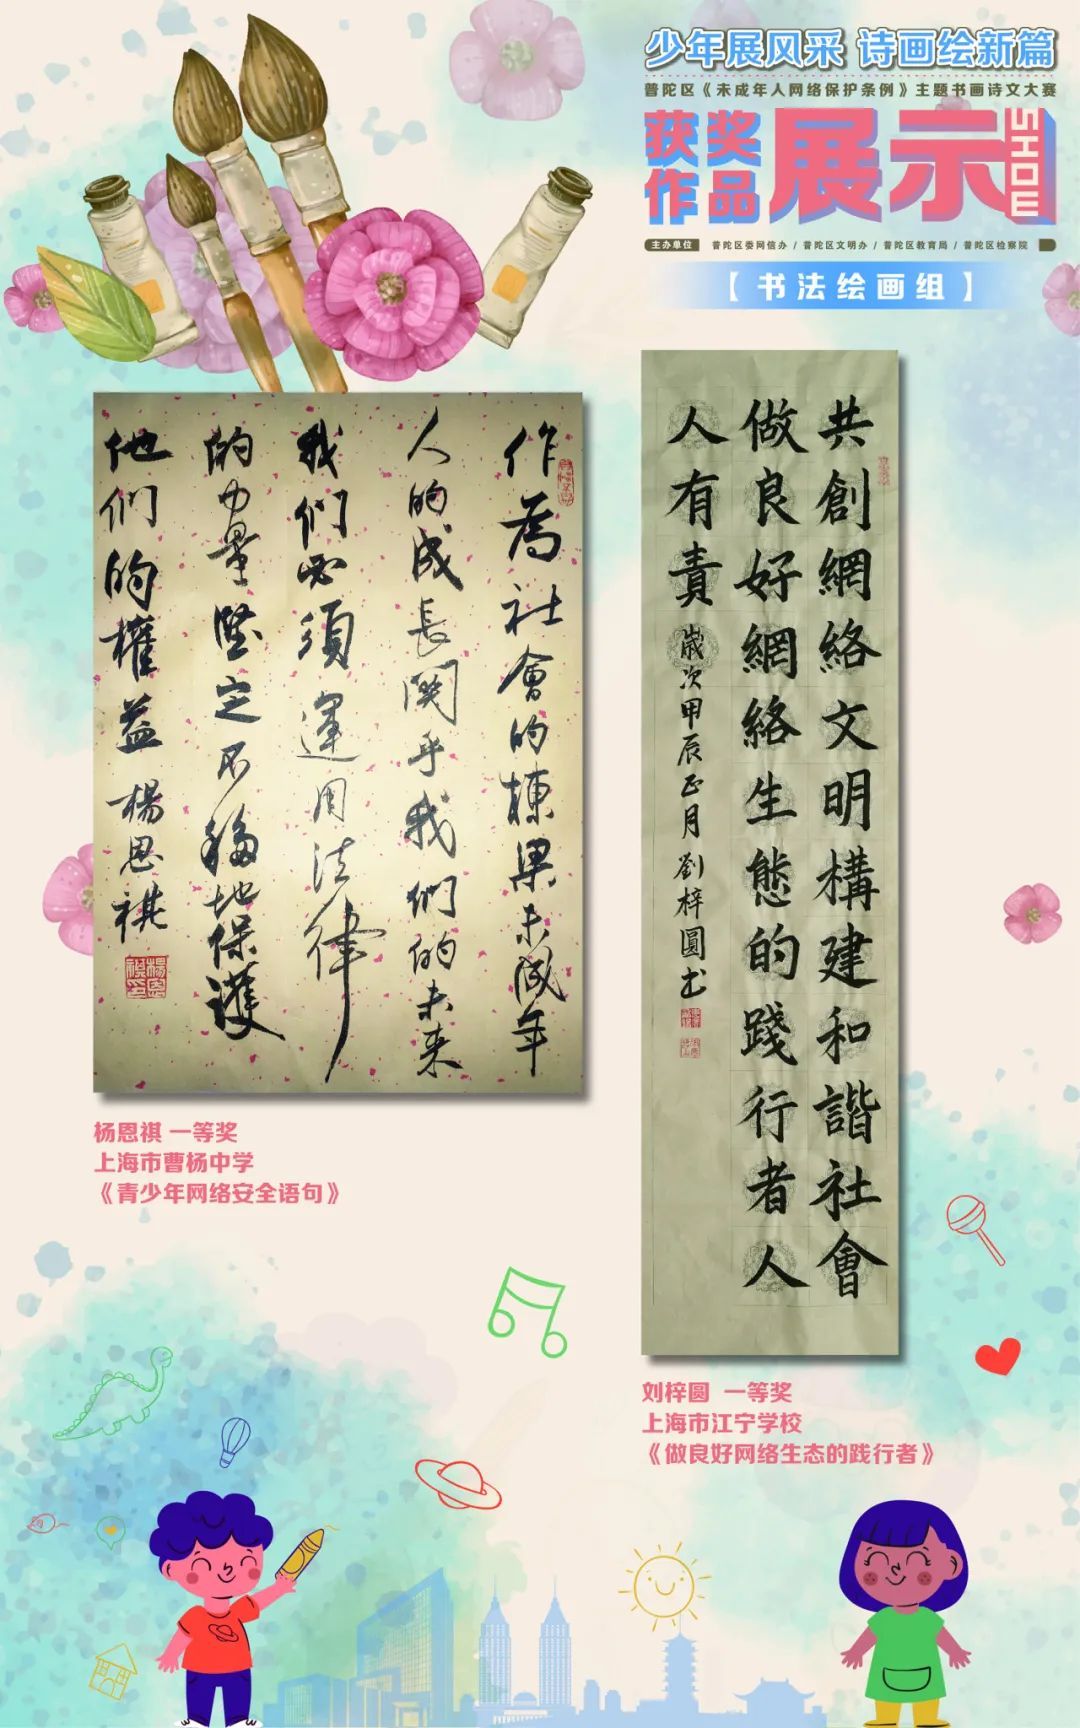 少年展风采 诗画绘新篇
普陀区《未成年人网络保护条例》主题书画诗文大赛
获奖
作品
展示
SHOW
主办单位 普陀区委网信办 / 普陀区文明办 / 普陀区教育局 / 普陀区检察院
【书法绘画组】
作为社會的棟梁未成年
人的成長関乎我们的未来
我们必須運用法律
的力量堅定不移地保護
他们的權益 楊恩祺
杨恩祺 一等奖
上海市曹杨中学
《青少年网络安全语句》
共創網絡文明構建和諧社會
做良好網絡生態的踐行者人
人有責 歲次甲辰正月劉梓圓书
刘梓圆 一等奖
上海市江宁学校
《做良好网络生态的践行者》